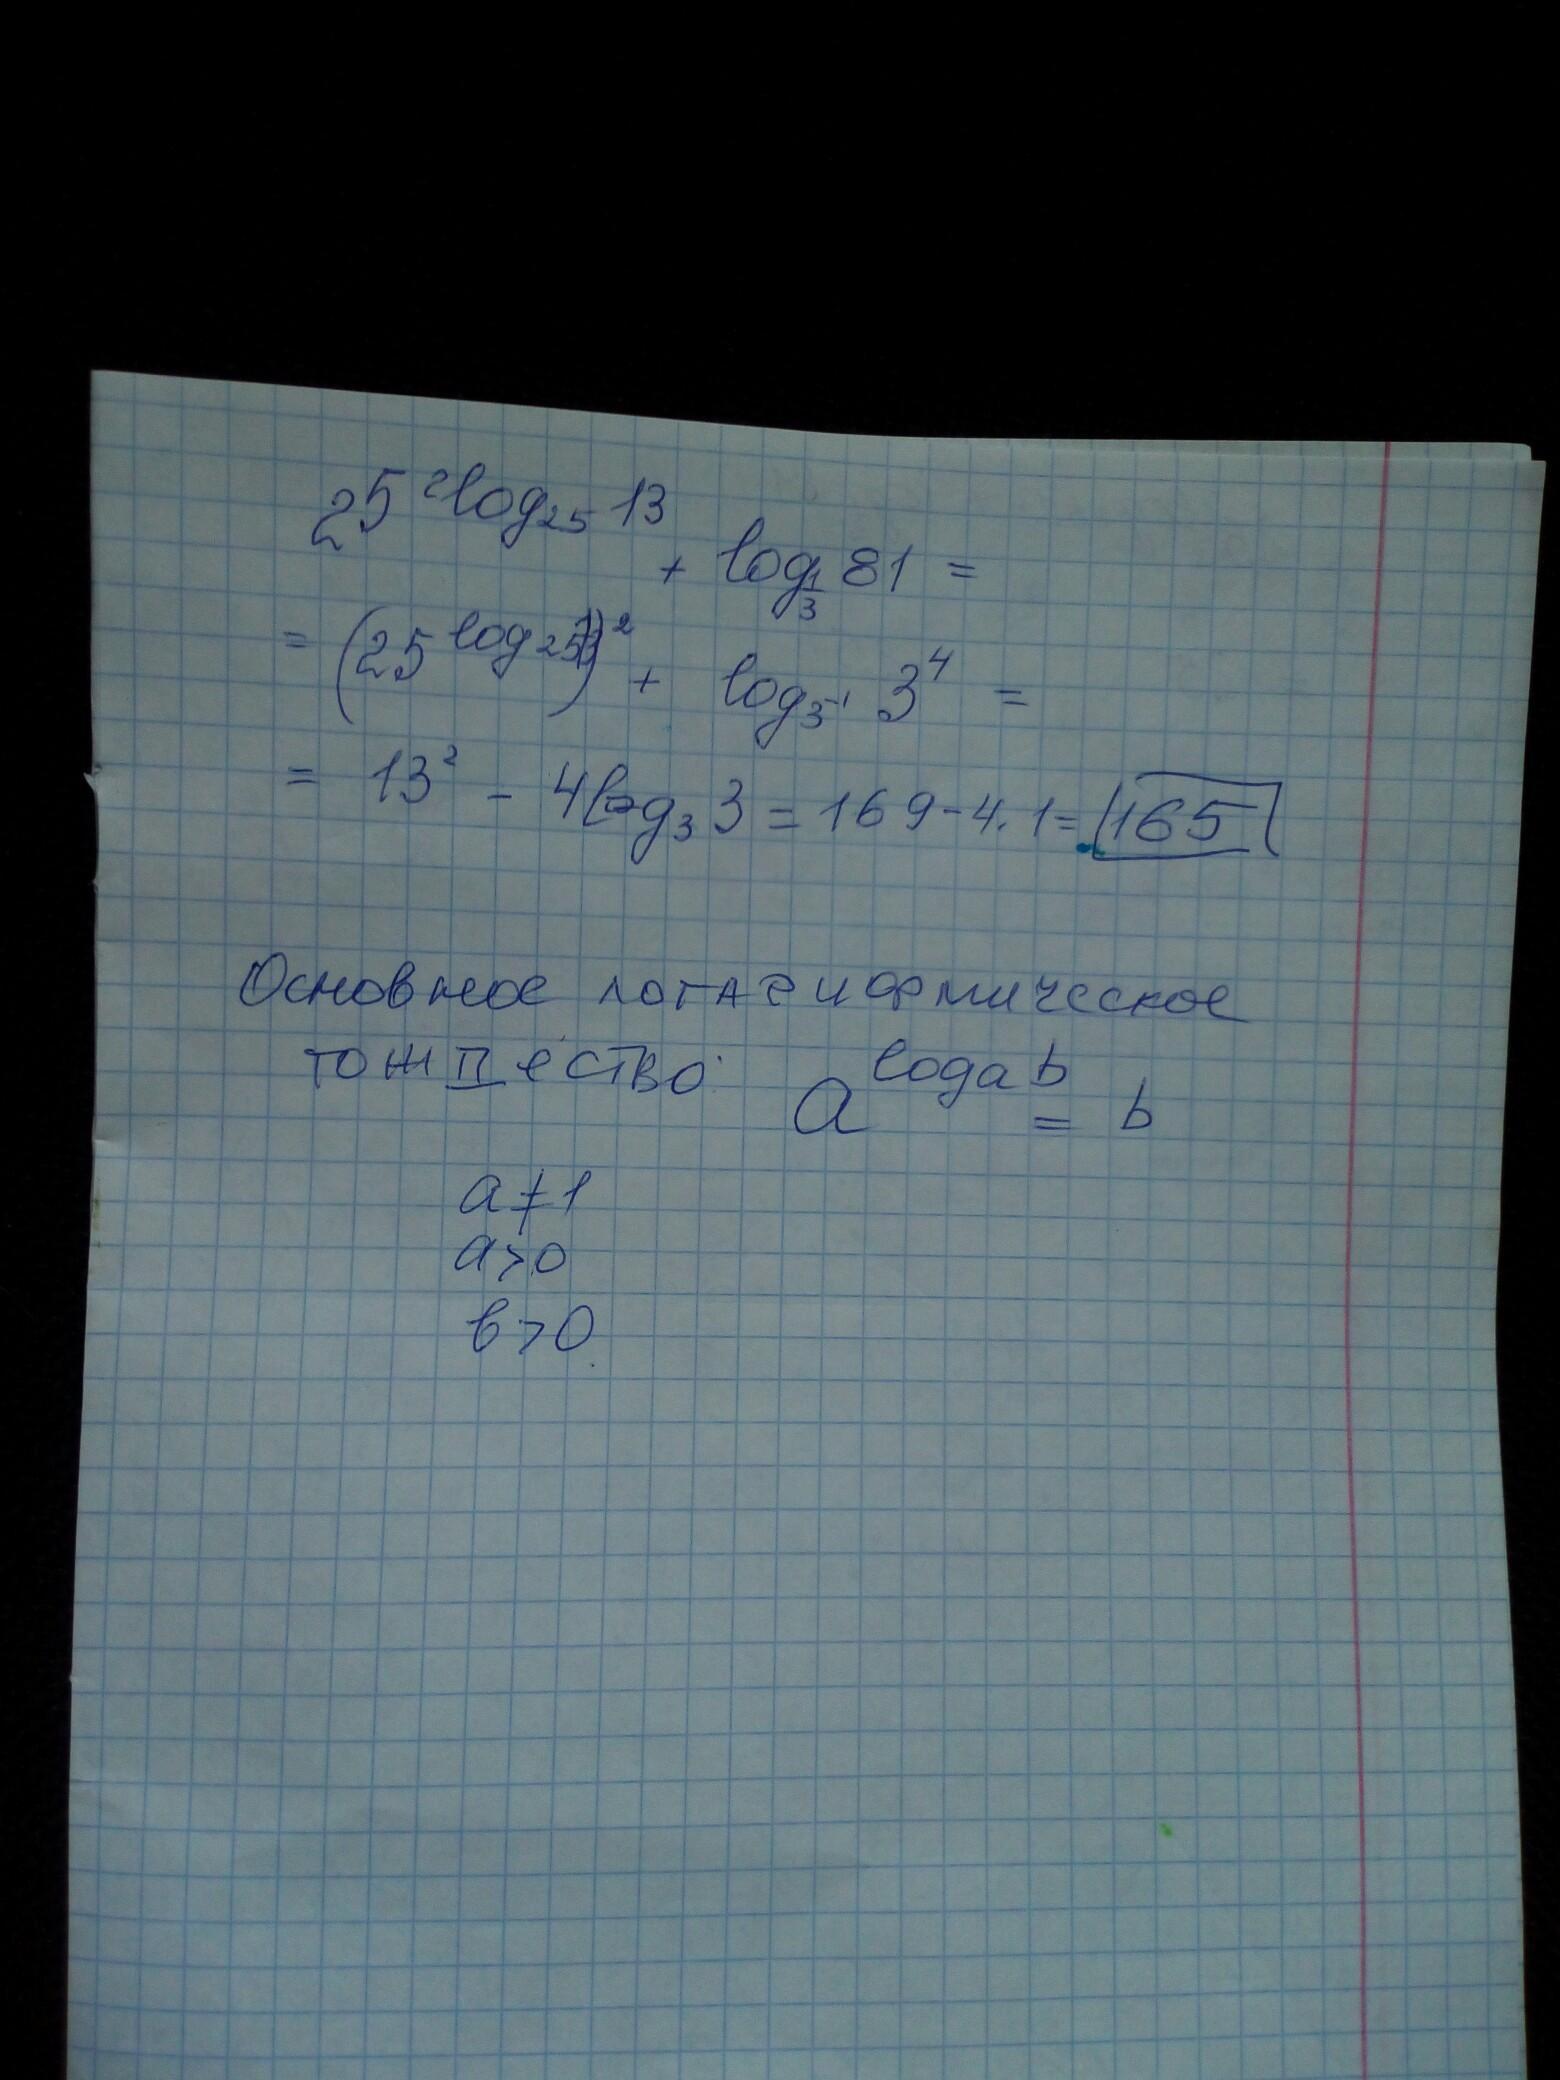 25^{2log_{25} 13} + log_{1/3} 81 =
= (25^{log_{25} 13})^2 + log_{3^{-1}} 3^4 =
= 13^2 - 4log_3 3 = 169 - 4.1 = 165
Основное логарифмическое
тождество: a^{log_a b} = b
a ≠ 1
a > 0
b > 0